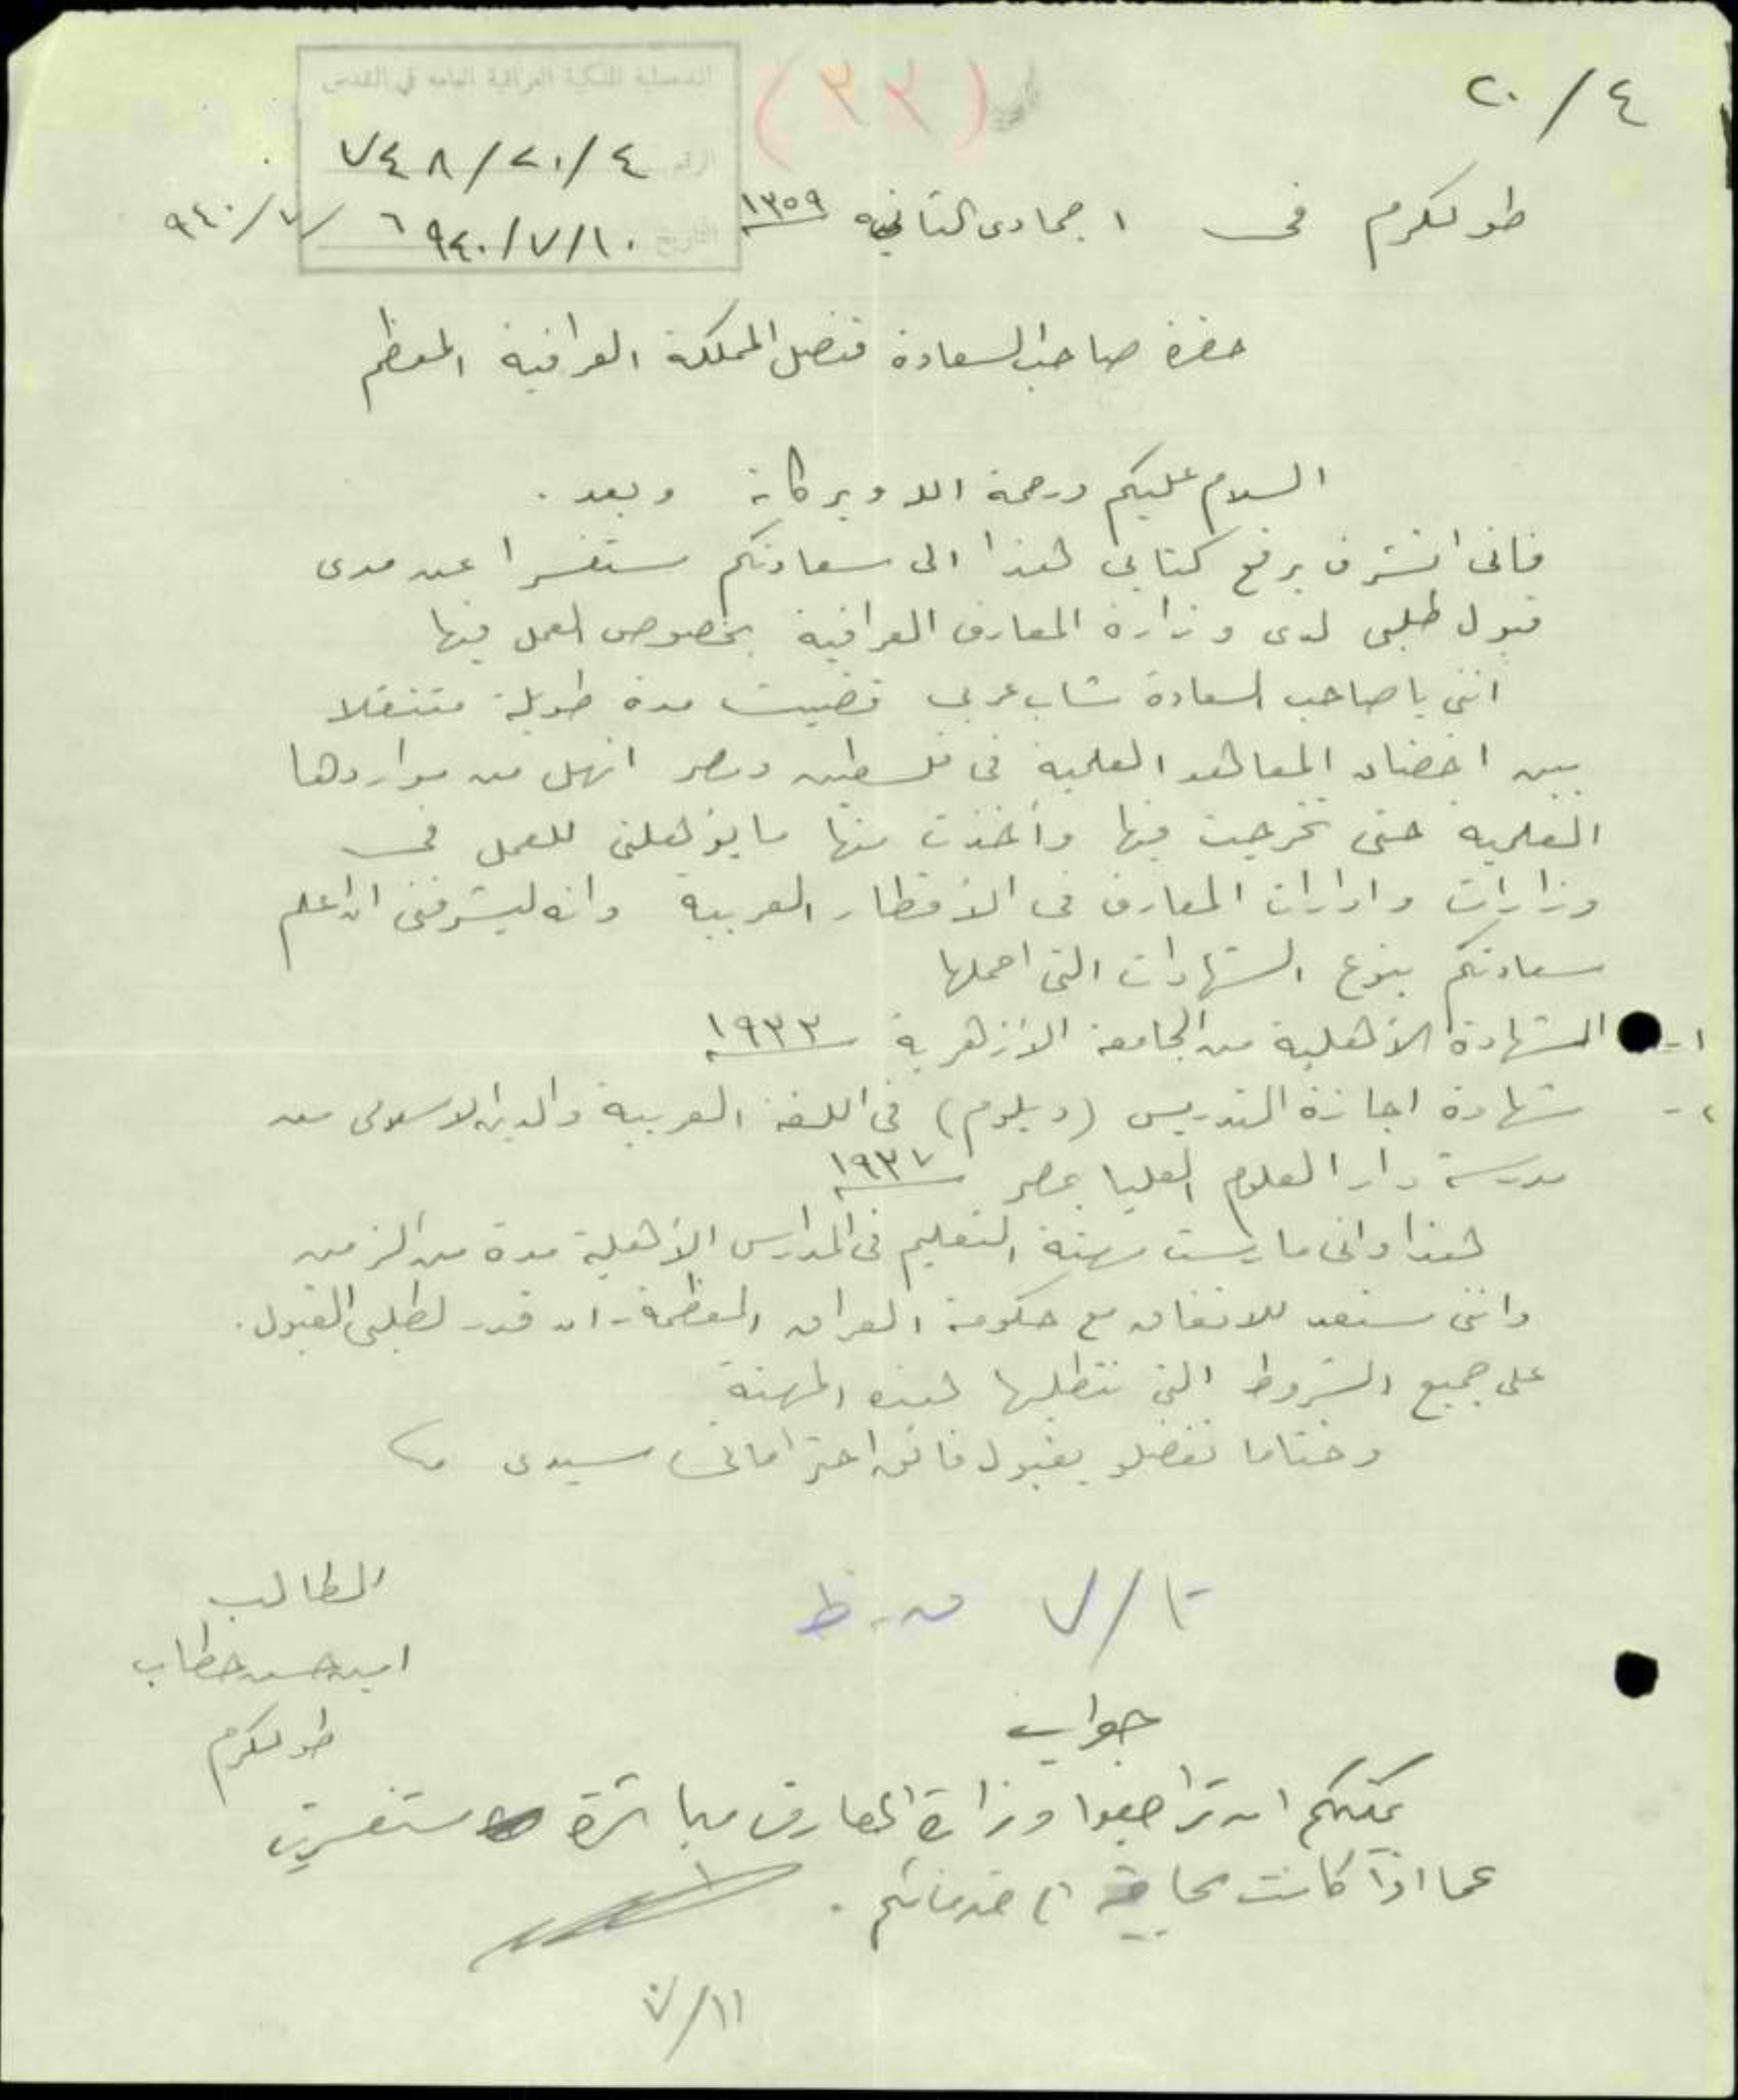 ٤/٢٠
(٣٣)
القنصلية الملكية العراقية العامة في القدس
الرقم ٧٤٨/٢٠/٤
التاريخ ٩٤٠/٧/١٠
طولكرم فى ١ جمادى الثانيه ١٣٥٩ ٦/٧/٩٤٠
حضرة صاحب السعادة قنصل المملكة العراقية المعظم
السلام عليكم ورحمة الله وبركاته وبعد .
فانى اتشرف برفع كتابى هذا الى سعادتكم مستفسرا عن مدى
قبول طلبى لدى وزارة المعارف العراقية بخصوص العمل فيها
اننى يا صاحب السعادة شاب عربى قضيت مدة طويلة متنقلا
بين احضان المعاهد العلمية فى فلسطين ومصر انهل من مواردها
العلمية حتى تخرجت فيها وأخذت منها ما يؤهلنى للعمل فى
وزارات وادارات المعارف فى الأقطار العربية وانه ليشرفنى ان اعلم
سعادتكم بنوع الشهادات التى احملها
١- الشهادة الأهلية من الجامعة الأزهرية ١٩٣٣
٢- شهادة اجازة التدريس (دبلوم) فى اللغة العربية والدين الاسلامى من
مدرسة دار العلوم العليا بمصر ١٩٣٧
هذا وانى مارست مهنة التعليم فى المدارس الأهلية مدة من الزمن
واننى مستعد للاتفاق مع حكومة العراق المعظمة - ان قدر لطلبى القبول .
على جميع الشروط التى تتطلبها هذه المهنة
وختاما تفضلو بقبول فائق احتراماتى سيدى
الطالب
امين حسن خطاب
طولكرم
٧/١٠
جواب
يمكنكم ان تراجعوا وزارة المعارف مباشرة مستفسرين
عما اذا كانت بحاجة الى خدماتكم .
٧/١١